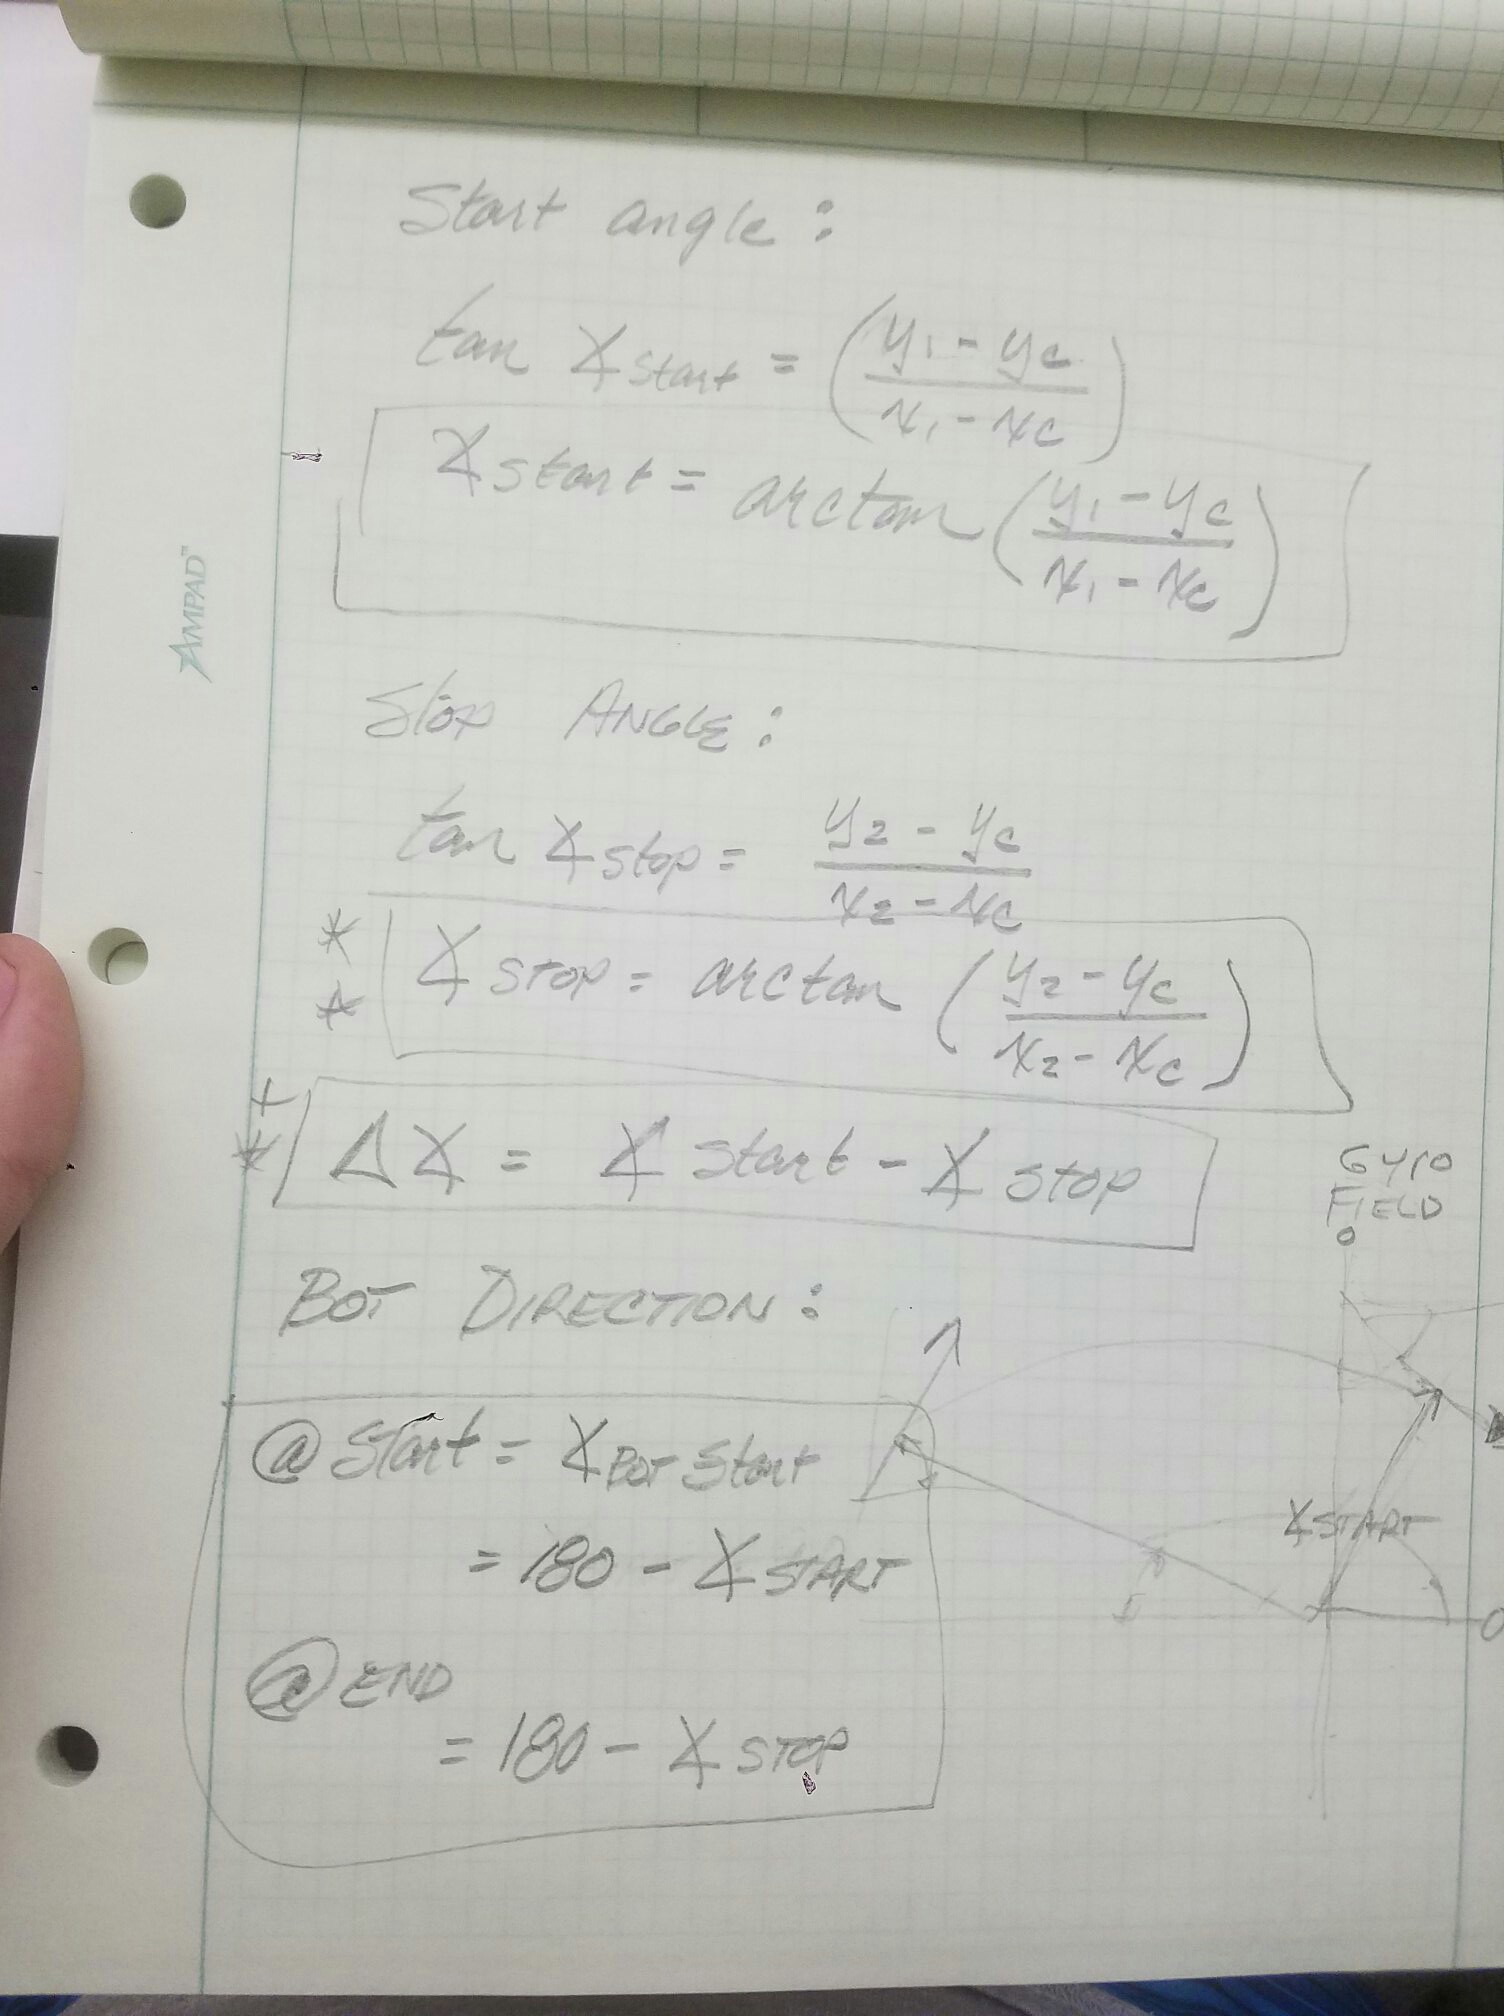 Start angle:
tan ∡start = (y1 - yc / x1 - xc)
∡start = arctan (y1 - yc / x1 - xc)
AMPAD™
Stop ANGLE:
tan ∡stop = y2 - yc / x2 - xc
* ∡STOP = arctan (y2 - yc / x2 - xc)
*
+
* Δ∡ = ∡start - ∡stop
GYRO
FIELD
0
BOT DIRECTION:
@ Start = ∡BOT Start
= 180 - ∡START
∡START
0
@ END
= 180 - ∡STOP